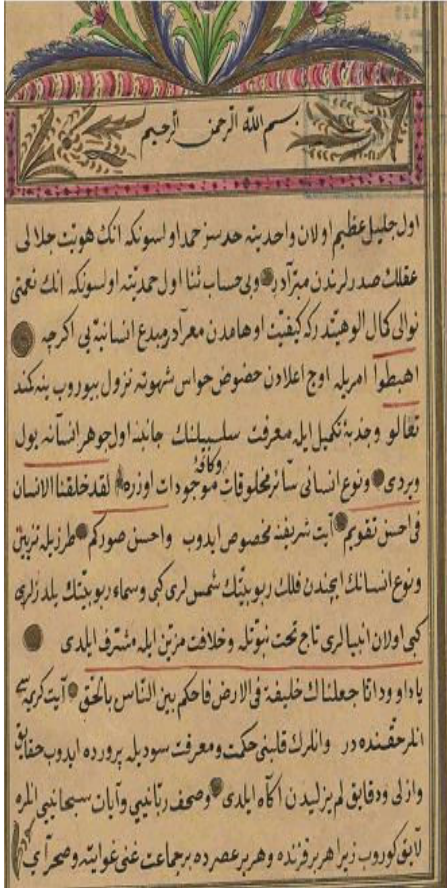 بسم الله الرحمن الرحيم
اول جليل عظيم اولان واحديته حدسز حمد اولسونكه انك هويت جلالى
عقلك صدرلرندن مبرادر وبى حساب ثنا اول حمديتنه اولسونكه انك نعمتى
نوالى كمال الوهيتدركه كيفيت اوهامدن معرادر مبدع انسانيه يى اكرچه
اهبطوا امريله اوج اعلادن حضوض حواس شهوته نزول بيوروب ينه كند
تعالو وجذبۀ تكميل ايله معرفت سلسبيلنك جانبنه اول جوهر انسانه يول
ويردى ونوع انسانى سائر مخلوقات وكافۀ موجودات اوزره لقد خلقنا الانسان
فى احسن تقويم آيت شريفنه مخصوص ايدوب واحسن صوركم طرزيله تزيين
ونوع انسانك ايچندن فلك ربوبيتك شمس لرى كبى وسماء ربوبيتك يلدزلرى
كبى اولان انبيالرى تاج تخت نبوتله وخلافت مزين ايله مشرف ايلدى
ياداوود انا جعلناك خليفة فى الارض فاحكم بين الناس بالحق آيت كريمه سى
انلر حقنده در وانلرك قلبنى حكمت ومعرفت سوديله پرورده ايدوب حقايق
وازلى ودقايق لم يزليدن آكاه ايلدى وصحف ربانييى وآيات سبحانييى انلره
لايق كوروب زيرا هر برقرنده وهر بر عصرده بر جماعت غنى غوايته وصحراى